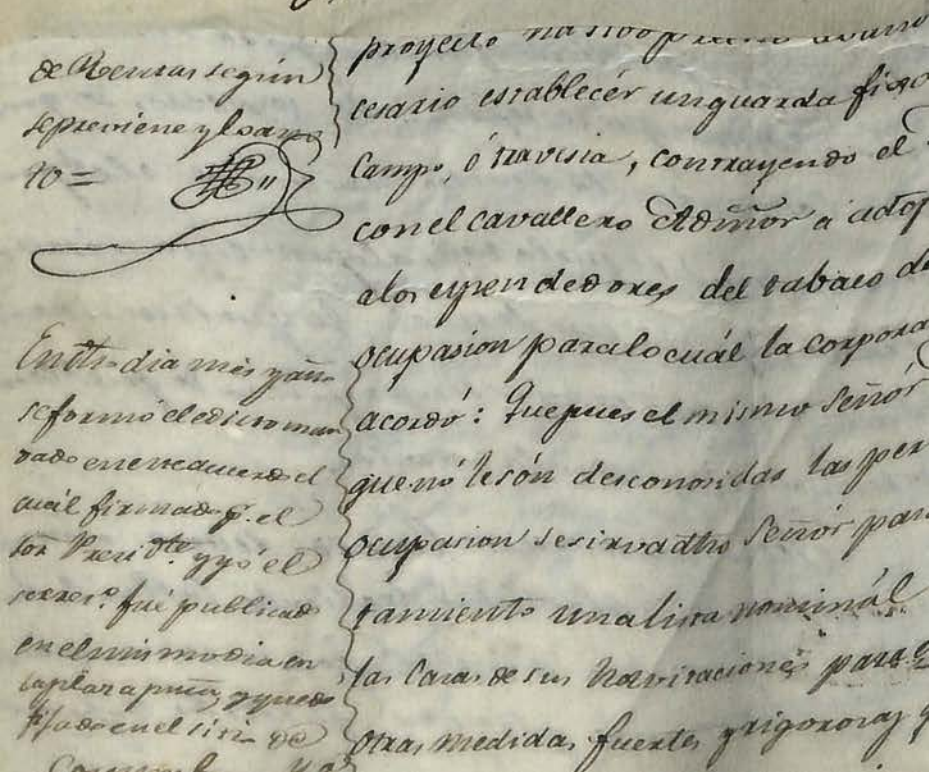 de Rentas según
se previene y lo ano
to =
En dho dia mes y año
se formó el edicto man
dado en este acuerdo el
cuál firmado p.r el
Sor Presidte y yó el
secreto fué publicado
en el mismo dia en
la plaza ppca, y quedó
fijado en el sitio de
proyecto ha sido
cesario establecér un guarda fixo
campo, ó travesia, contrayendo el
con el cavallero Admõr a adop
a los expendedores del tabaco de
ocupasion para lo cuál la corpora
acordó: Que pues el mismo Señór
que nó le són desconosidas las per
ocupasion se sirva dho Señór par
tamiento una lista nominál
las Casas de sus havitaciones para q
otras medidas fuertes y rigorosas q